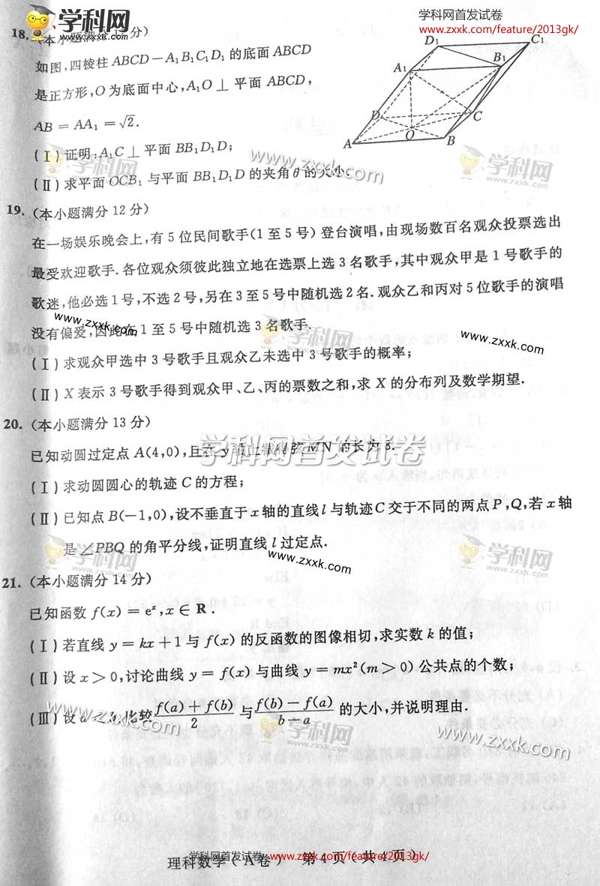 学科网首发试卷
www.zxxk.com/feature/2013gk/
18. (本小题满分12分)
如图,四棱柱 ABCD－A₁B₁C₁D₁ 的底面 ABCD
是正方形,O为底面中心,A₁O⊥平面ABCD,
AB＝AA₁＝√2.
(Ⅰ)证明:A₁C⊥平面 BB₁D₁D;
(Ⅱ)求平面OCB₁与平面BB₁D₁D的夹角θ的大小.
D₁ C₁
A₁ B₁
D C
O
A B
19. (本小题满分12分)
在一场娱乐晚会上,有5位民间歌手(1至5号)登台演唱,由现场数百名观众投票选出
最受欢迎歌手.各位观众须彼此独立地在选票上选3名歌手,其中观众甲是1号歌手的
歌迷,他必选1号,不选2号,另在3至5号中随机选2名.观众乙和丙对5位歌手的演唱
没有偏爱,因此在1至5号中随机选3名歌手.
(Ⅰ)求观众甲选中3号歌手且观众乙未选中3号歌手的概率;
(Ⅱ)X表示3号歌手得到观众甲、乙、丙的票数之和,求X的分布列及数学期望.
20. (本小题满分13分)
已知动圆过定点A(4,0),且在y轴上截得弦MN的长为8.
(Ⅰ)求动圆圆心的轨迹C的方程;
(Ⅱ)已知点B(－1,0),设不垂直于x轴的直线l与轨迹C交于不同的两点P,Q,若x轴
是∠PBQ的角平分线,证明直线l过定点.
21. (本小题满分14分)
已知函数 f(x)＝eˣ,x∈R.
(Ⅰ)若直线y＝kx＋1与f(x)的反函数的图像相切,求实数k的值;
(Ⅱ)设x＞0,讨论曲线y＝f(x)与曲线y＝mx²(m＞0)公共点的个数;
(Ⅲ)设a＜b,比较 (f(a)＋f(b))/2 与 (f(b)－f(a))/(b－a) 的大小,并说明理由.
理科数学(A卷) 第4页(共4页)
学科网首发试卷 www.zxxk.com/feature/2013gk/